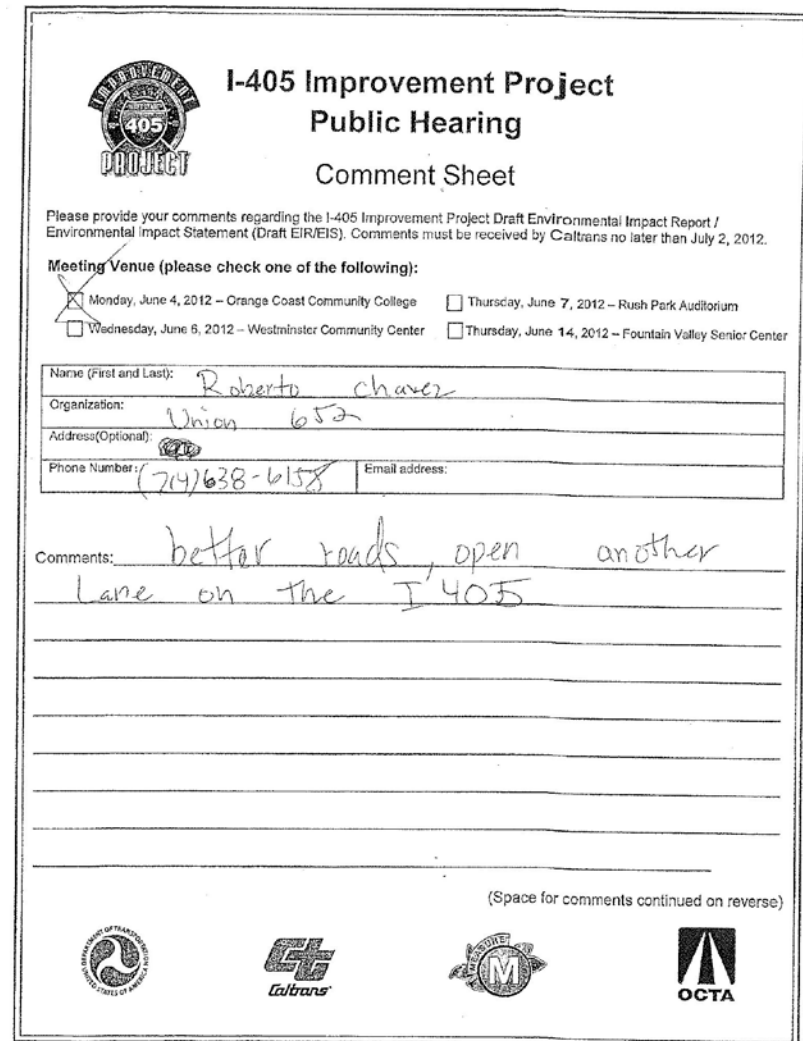 IMPROVEMENT
405
PROJECT
I-405 Improvement Project
Public Hearing
Comment Sheet
Please provide your comments regarding the I-405 Improvement Project Draft Environmental Impact Report /
Environmental Impact Statement (Draft EIR/EIS). Comments must be received by Caltrans no later than July 2, 2012.
Meeting Venue (please check one of the following):
Monday, June 4, 2012 – Orange Coast Community College
Thursday, June 7, 2012 – Rush Park Auditorium
Wednesday, June 6, 2012 – Westminster Community Center
Thursday, June 14, 2012 – Fountain Valley Senior Center
Name (First and Last): Roberto Chavez
Organization: Union 652
Address(Optional):
Phone Number: (714) 638-6158 Email address:
Comments: better roads, open another
Lane on the I 405
(Space for comments continued on reverse)
DEPARTMENT OF TRANSPORTATION
UNITED STATES OF AMERICA
Caltrans
MEASURE
M
OCTA